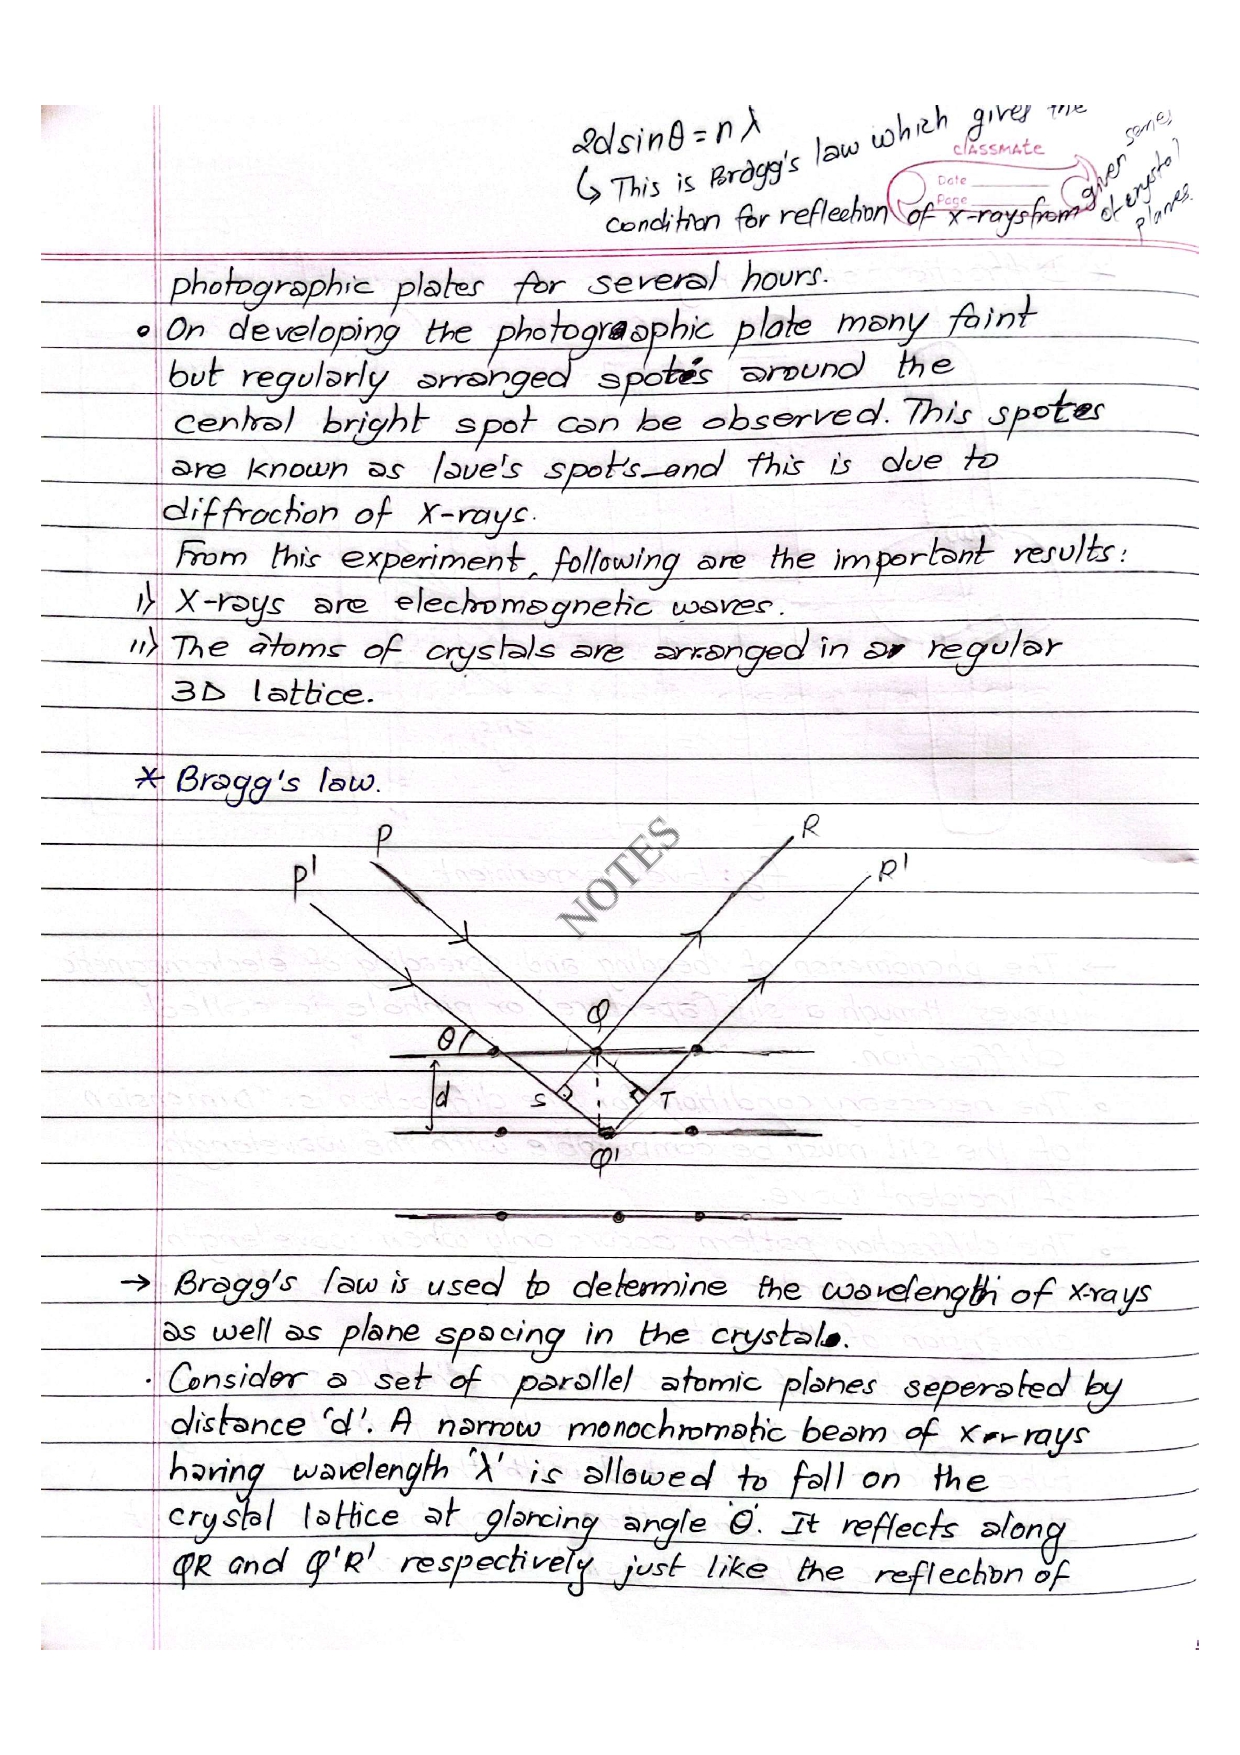 2dsinθ = nλ
↳ This is Bragg's law which gives the
condition for reflection of x-rays from given series of crystal planes.
classmate
Date
Page
photographic plates for several hours.
• On developing the photographic plate many faint
but regularly arranged spots around the
central bright spot can be observed. This spotes
are known as laue's spot's and this is due to
diffraction of X-rays.
From this experiment, following are the important results:
i) X-rays are electromagnetic waves.
ii) The atoms of crystals are arranged in a regular
3D lattice.
* Bragg's law.
P
R
P'
R'
NOTES
Q
θ
d
S
T
Q'
→ Bragg's law is used to determine the wavelength of x-rays
as well as plane spacing in the crystal.
. Consider a set of parallel atomic planes seperated by
distance 'd'. A narrow monochromatic beam of x-rays
having wavelength 'λ' is allowed to fall on the
crystal lattice at glancing angle 'θ'. It reflects along
QR and Q'R' respectively just like the reflection of